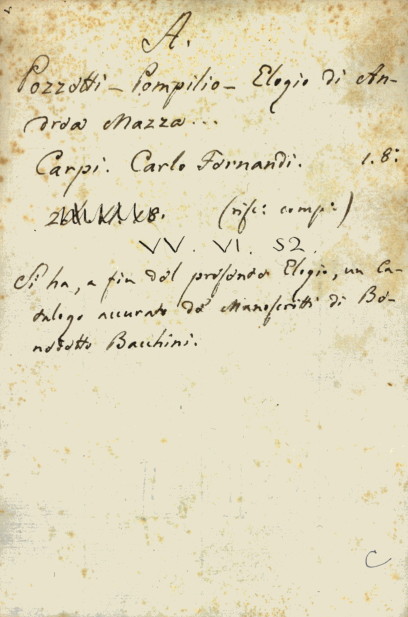 A.
Pozzetti - Pompilio - Elogio di An-
drea Mazza...
Carpi. Carlo Fernandi. 1. 8:
(rise: comp:)
VV. VI. 52.
Si ha, a fin del presente Elogio, un Ca-
talogo accurato de' Manoscritti di Be-
nedetto Bacchini.
C